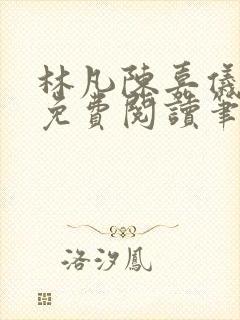 林凡陳嘉儀
免費閱讀筆
洛汐鳳